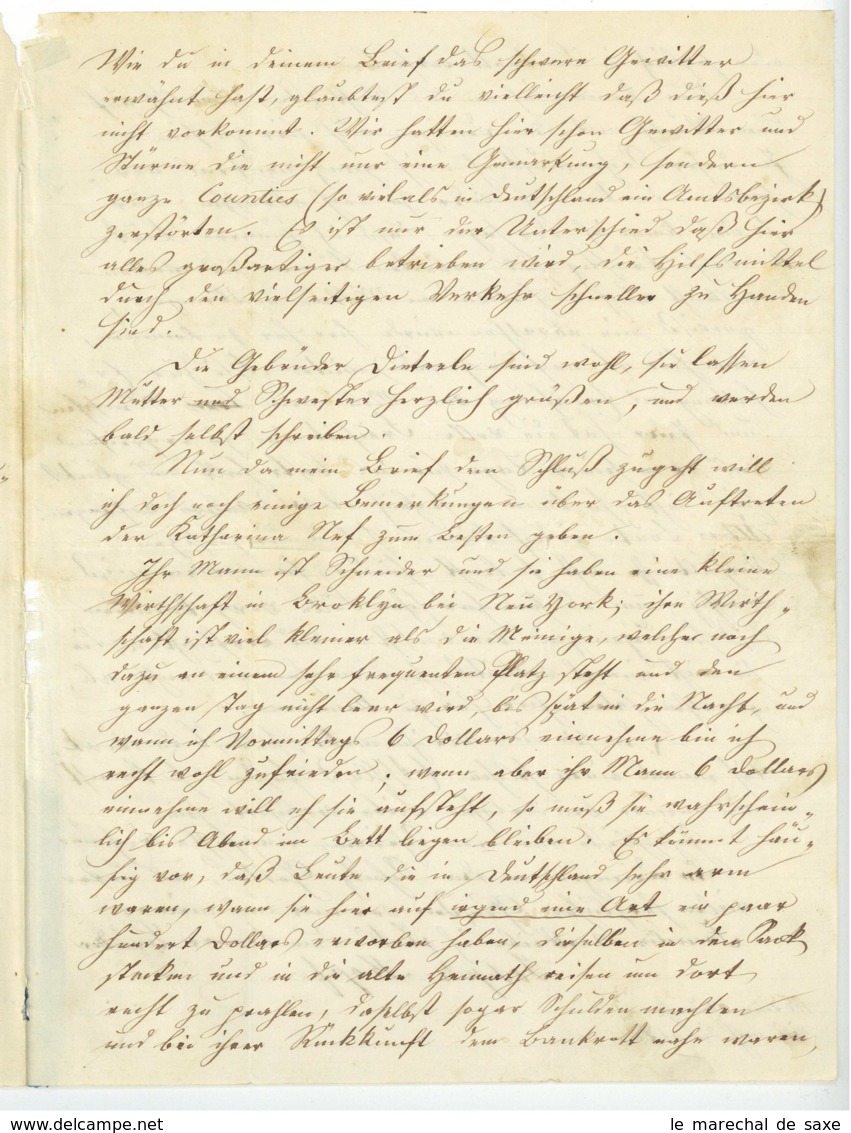 Wie du in deinem Brief das schwere Gewitter
erwähnt hast, glaubtest du vielleicht daß dieß hier
nicht vorkommt. Wir hatten hier schon Gewitter und
Stürme die nicht nur eine Gemarkung, sondern
ganze Counties (so viel als in Deutschland ein Amtsbezirk)
zerstörten. Es ist nur der Unterschied daß hier
alles großartiger betrieben wird, die Hilfsmittel
durch den vielseitigen Verkehr schneller zu Handen
sind.
Die Gebrüder Dieterle sind wohl, sie lassen
Mutter und Schwester herzlich grüßen, und werden
bald selbst schreiben.
Nun da mein Brief dem Schluß zugeht will
ich doch noch einige Bemerkungen über das Auftreten
der Katharina Nef zum Besten geben.
Ihr Mann ist Schneider und sie haben eine kleine
Wirthschaft in Broklyn bei Neu York; ihre Wirth-
schaft ist viel kleiner als die Meinige, welcher noch
dazu an einem sehr frequenten Platz steht und den
ganzen Tag nicht leer wird, bis spät in die Nacht, und
wann ich Vormittags 6 Dollars einnehme bin ich
recht wohl zufrieden; wenn aber ihr Mann 6 Dollars
einnehme will eh sie aufsteht, so muß sie wahrschein-
lich bis Abend im Bett liegen bleiben. Es kömmt häu-
fig vor, daß Leute die in Deutschland sehr arm
waren, wann sie hier auf irgend eine Art ein paar
hundert Dollars erworben haben, dieselben in den Sack
stecken und in die alte Heimath reisen um dort
recht zu prahlen, daselbst sogar Schulden machten
und bei ihrer Rückkunft dem Bankrott nahe waren,
le marechal de saxe